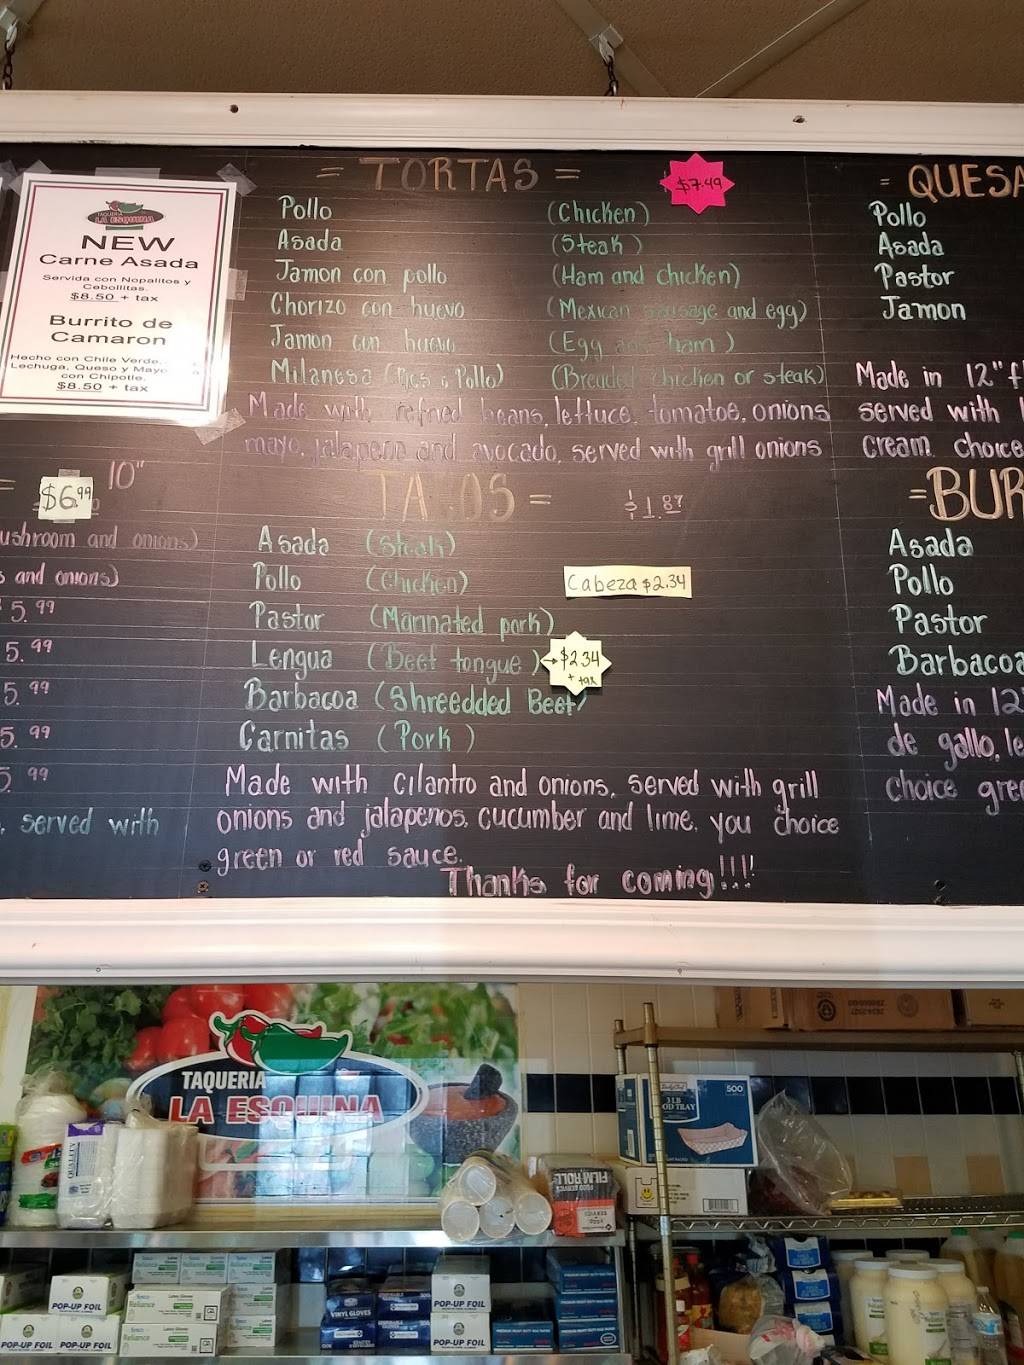 = TORTAS =
$7.49
Pollo (Chicken)
Asada (Steak)
Jamon con pollo (Ham and chicken)
Chorizo con huevo (Mexican sausage and egg)
Jamon con huevo (Egg and ham)
Milanesa (Res o Pollo) (Breaded chicken or steak)
Made with refried beans, lettuce, tomatoe, onions
mayo, jalapeno and avocado, served with grill onions
TAQUERIA
LA ESQUINA
NEW
Carne Asada
Servida con Nopalitos y
Cebollitas.
$8.50 + tax
Burrito de
Camaron
Hecho con Chile Verde,
Lechuga, Queso y Mayo
con Chipotle.
$8.50 + tax
= QUESA
Pollo
Asada
Pastor
Jamon
Made in 12"
served with
cream choice
= 10"
$6.99
ushroom and onions)
s and onions)
5.99
5.99
5.99
5.99
5.99
served with
TACOS =
$1.87
Asada (Steak)
Pollo (Chicken)
Cabeza $2.34
Pastor (Marinated pork)
Lengua (Beef tongue) → $2.34
+ tax
Barbacoa (Shreedded Beef)
Carnitas (Pork)
Made with cilantro and onions, served with grill
onions and jalapenos, cucumber and lime, you choice
green or red sauce.
Thanks for coming!!!!
=BUR
Asada
Pollo
Pastor
Barbacoa
Made in 12
de gallo, le
choice gre
TAQUERIA
LA ESQUINA
500
3 LB
OD TRAY
QUALITY
FILM ROLL
POP-UP FOIL
POP-UP FOIL
POP-UP FOIL
POP-UP FOIL
POP-UP FOIL
Reliance
Reliance
VINYL GLOVES